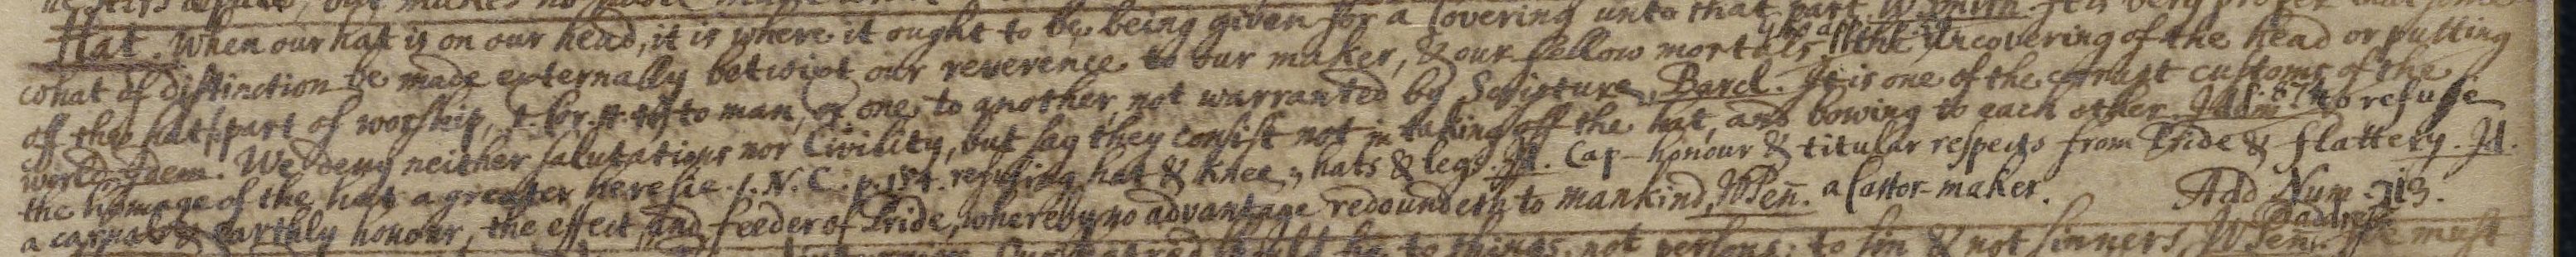 Hat. When our hat is on our head, it is where it ought to be, being given for a Covering unto that part. W. Smith. It is very proper that some
what of distinction be made externally betwixt our reverence to our maker, & our fellow mortals the Uncovering of the head or putting
off the hat part of worship, to man, or one to another, not warranted by Scripture. Barcl. It is one of the corrupt customs of the
world. Idem. We deny neither salutations nor Civility, but say they consist not in taking off the hat, and bowing to each other. to refuse
the homage of the hat a greater heresie. S. N. C. p. 154. refusing hat & knee, hats & legs. Id. Cap-honour & titular respects from Pride & flattery. Id.
a carnal & earthly honour, the effect and feeder of Pride, whereby no advantage redoundeth to mankind, W Pen. a Castor-maker. Add Num 213.
things, not persons; to sin & not sinners, W Pen. must